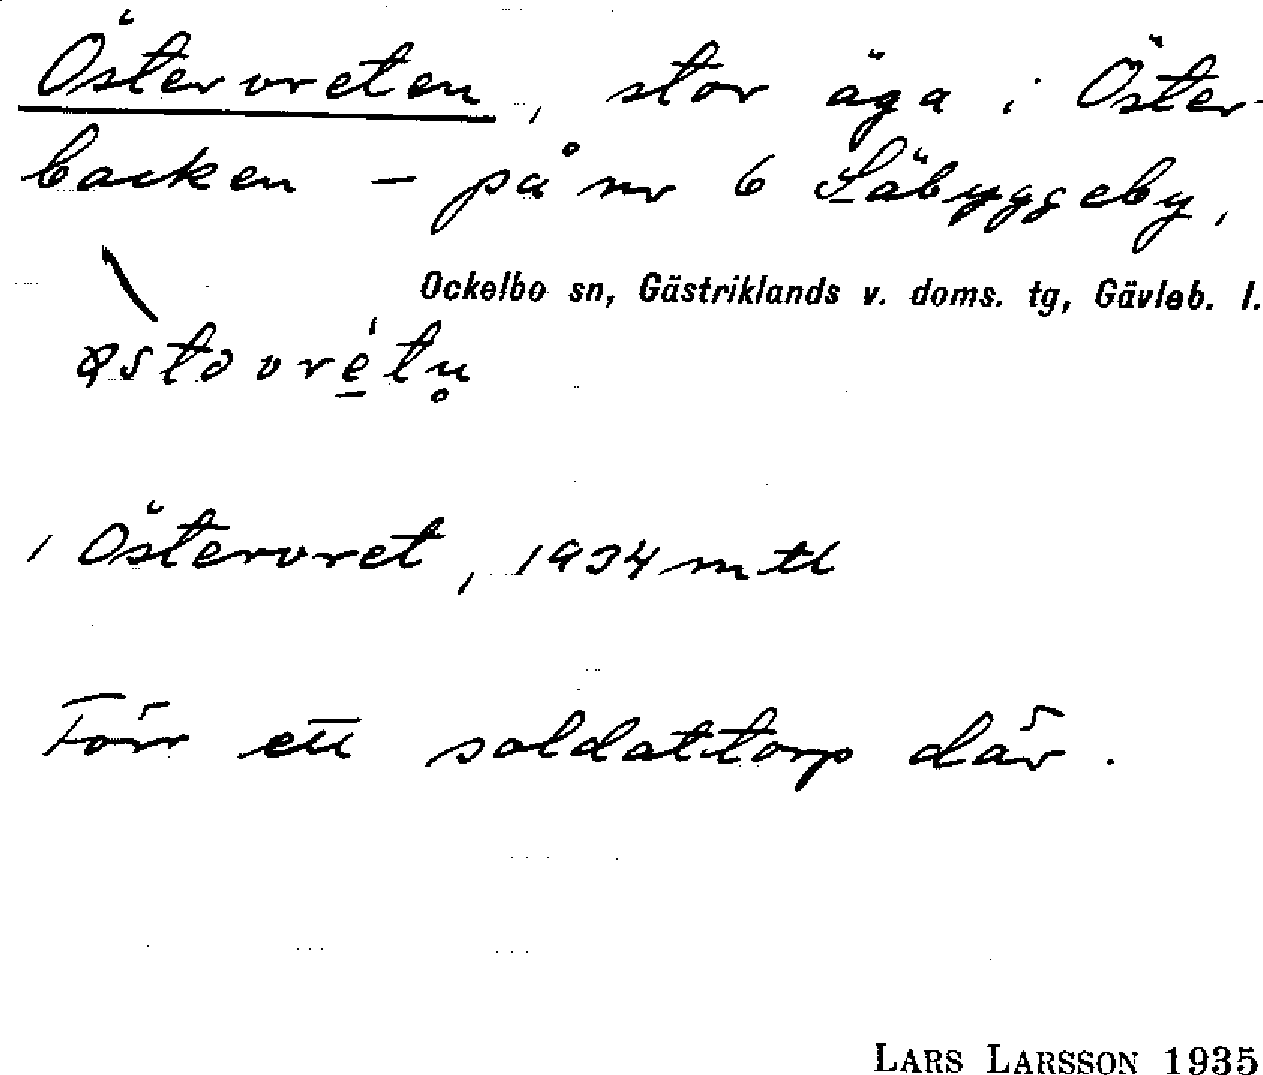 Östervreten, stor äga i Öster-
backen - på nr 6 Säbyggeby,
Ockelbo sn, Gästriklands v. doms. tg, Gävleb. l.
östəvrétn̥
1 Östervret, 1934 mtl
Förr ett soldattorp där.
LARS LARSSON 1935